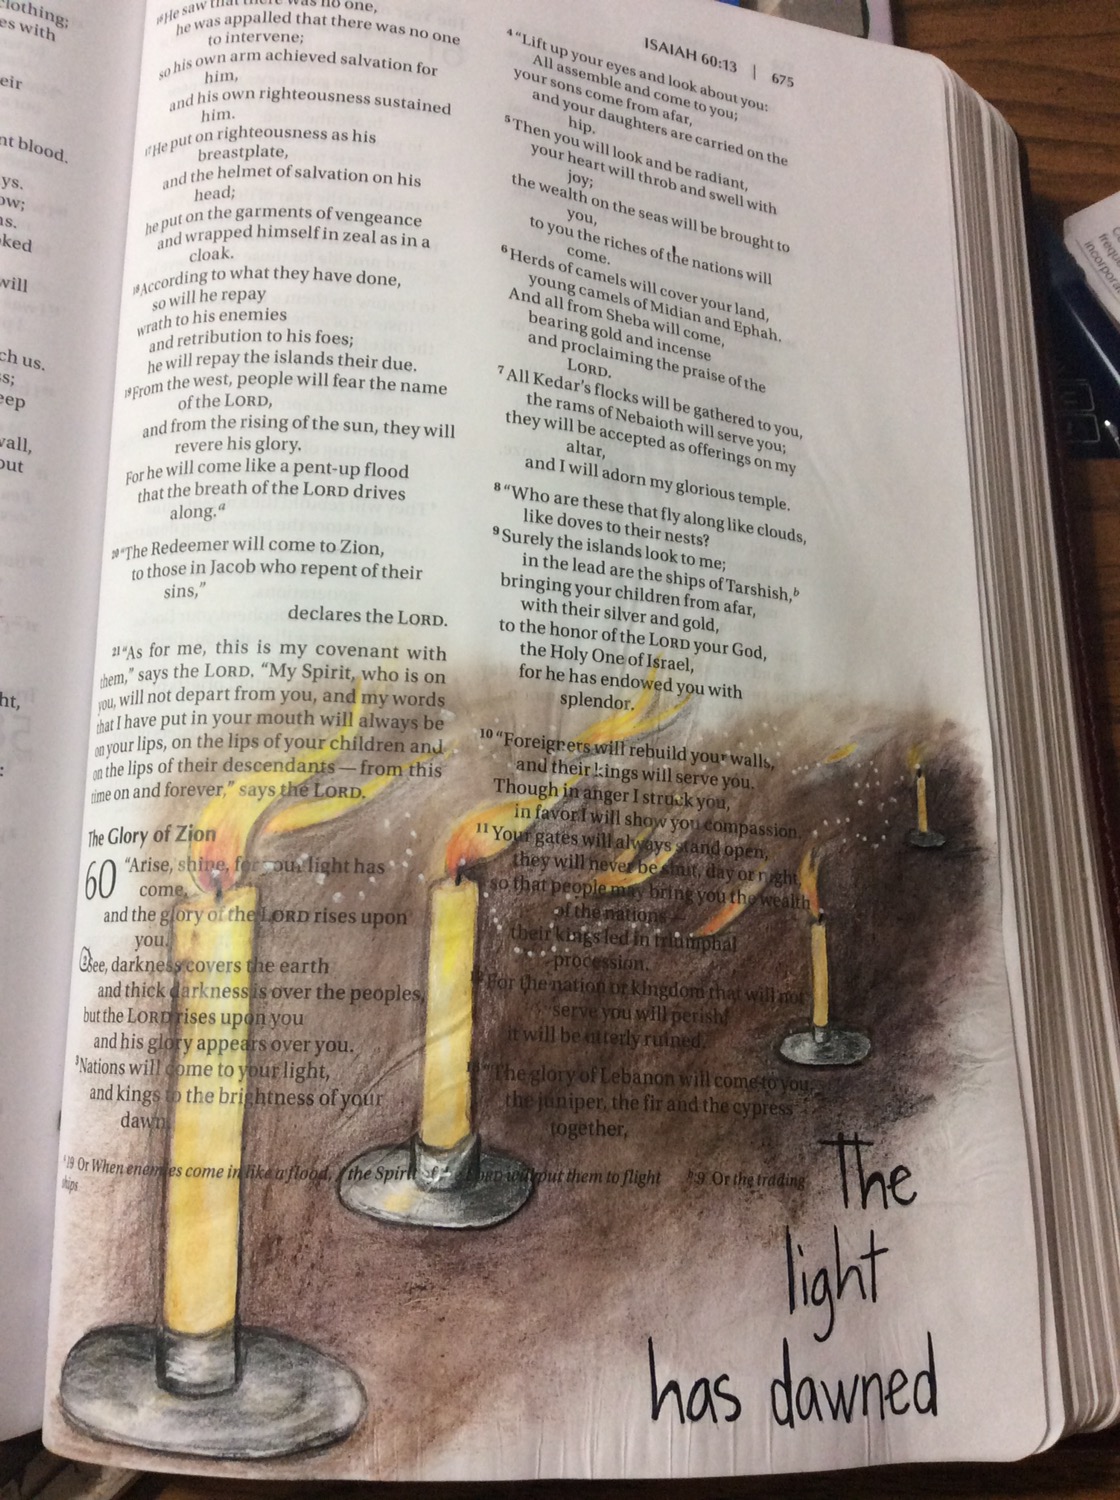 clothing;
es with
eir
nt blood.
ys.
ow;
ns.
ked
will
ch us.
s;
eep
wall,
out
ht,
:
¹⁶He saw that there was no one,
he was appalled that there was no one
to intervene;
so his own arm achieved salvation for
him,
and his own righteousness sustained
him.
¹⁷He put on righteousness as his
breastplate,
and the helmet of salvation on his
head;
he put on the garments of vengeance
and wrapped himself in zeal as in a
cloak.
¹⁸According to what they have done,
so will he repay
wrath to his enemies
and retribution to his foes;
he will repay the islands their due.
¹⁹From the west, people will fear the name
of the LORD,
and from the rising of the sun, they will
revere his glory.
For he will come like a pent-up flood
that the breath of the LORD drives
along.ᵃ
²⁰“The Redeemer will come to Zion,
to those in Jacob who repent of their
sins,”
declares the LORD.
²¹“As for me, this is my covenant with
them,” says the LORD. “My Spirit, who is on
you, will not depart from you, and my words
that I have put in your mouth will always be
on your lips, on the lips of your children and
on the lips of their descendants — from this
time on and forever,” says the LORD.
The Glory of Zion
60 “Arise, shine, for your light has
come,
and the glory of the LORD rises upon
you.
²See, darkness covers the earth
and thick darkness is over the peoples,
but the LORD rises upon you
and his glory appears over you.
³Nations will come to your light,
and kings to the brightness of your
dawn.
ISAIAH 60:13 | 675
⁴“Lift up your eyes and look about you:
All assemble and come to you;
your sons come from afar,
and your daughters are carried on the
hip.
⁵Then you will look and be radiant,
your heart will throb and swell with
joy;
the wealth on the seas will be brought to
you,
to you the riches of the nations will
come.
⁶Herds of camels will cover your land,
young camels of Midian and Ephah.
And all from Sheba will come,
bearing gold and incense
and proclaiming the praise of the
LORD.
⁷All Kedar’s flocks will be gathered to you,
the rams of Nebaioth will serve you;
they will be accepted as offerings on my
altar,
and I will adorn my glorious temple.
⁸“Who are these that fly along like clouds,
like doves to their nests?
⁹Surely the islands look to me;
in the lead are the ships of Tarshish,ᵇ
bringing your children from afar,
with their silver and gold,
to the honor of the LORD your God,
the Holy One of Israel,
for he has endowed you with
splendor.
¹⁰“Foreigners will rebuild your walls,
and their kings will serve you.
Though in anger I struck you,
in favor I will show you compassion.
¹¹Your gates will always stand open,
they will never be shut, day or night,
so that people may bring you the wealth
of the nations —
their kings led in triumphal
procession.
¹²For the nation or kingdom that will not
serve you will perish;
it will be utterly ruined.
¹³“The glory of Lebanon will come to you,
the juniper, the fir and the cypress
together,
ᵃ19 Or When enemies come in like a flood, / the Spirit of the LORD will put them to flight ᵇ9 Or the trading
ships
The
light
has dawned
frequen
incorpora